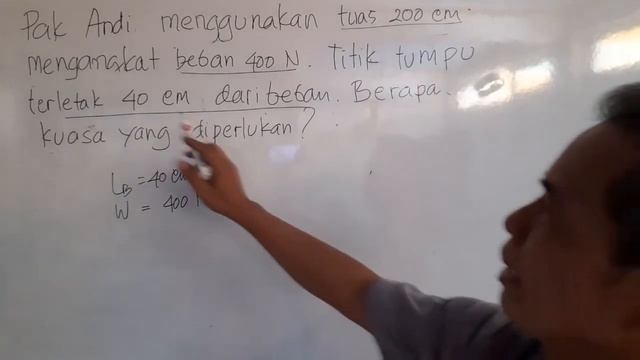 Pak Andi menggunakan tuas 200 cm
mengangkat beban 400 N. Titik tumpu
terletak 40 cm dari beban. Berapa
kuasa yang diperlukan?
LB = 40 cm
W = 400